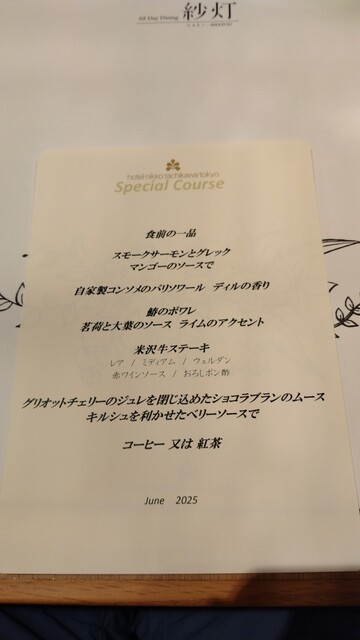 All Day Dining 紗灯
hotel nikko tachikawa tokyo
Special Course
食前の一品
スモークサーモンとグレック
マンゴーのソースで
自家製コンソメのパリソワール ディルの香り
鰆のポワレ
茗荷と大葉のソース ライムのアクセント
米沢牛ステーキ
レア / ミディアム / ウェルダン
赤ワインソース / おろしポン酢
グリオットチェリーのジュレを閉じ込めたショコラブランのムース
キルシュを利かせたベリーソースで
コーヒー 又は 紅茶
June 2025